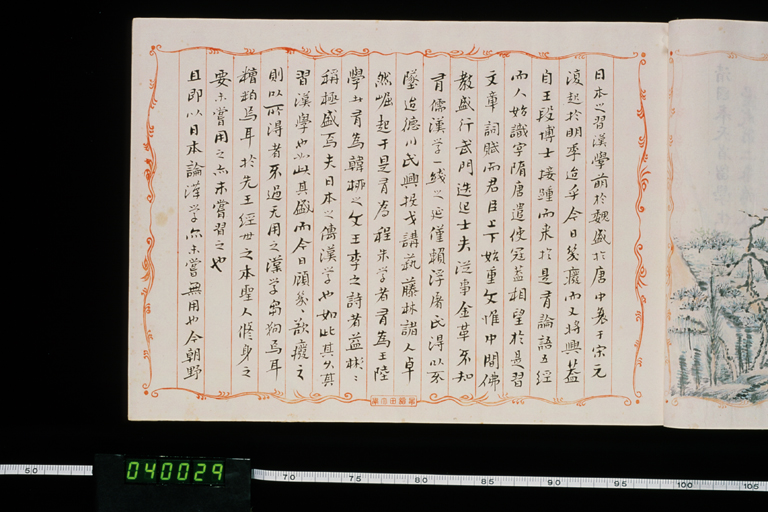 日本之習漢學萌於魏盛於唐中衰于宋元
復起於明季迄乎今日幾癈而又將興蓋
自王段博士接踵而来於是有論語五經
而人始識字隋唐遣使冠蓋相望於是習
文章詞賦而君臣上下始重文惟中間佛
教盛行武門迭起士夫從事金革不知
有儒漢学一綫之延僅賴浮屠氏得以不
墜迨德川氏興投戈講蓺藤林諸人卓
然崛起于是有為程朱学者有為王陸
學者有為韓柳之文王李之詩者益彬〻
稱極盛焉夫日本之傳漢学也如此其久其
習漢學也如此其盛而今日顧幾〻欲癈之
則以所得者不過无用之漢学芻狗焉耳
糟粕焉耳於先王經世之本聖人修身之
要未嘗用之亦未嘗習之也
且即以日本論漢学亦未嘗無用也今朝野
040029
50
70
75
80
85
90
95
100
105